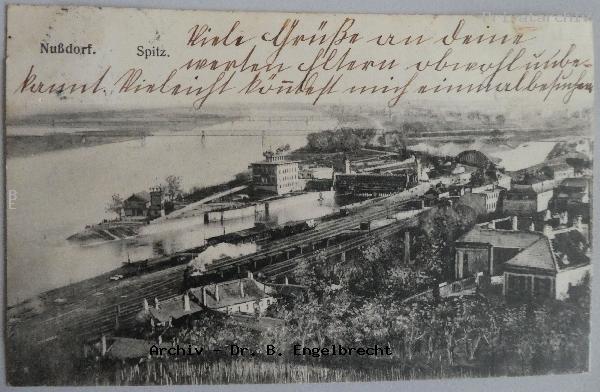 Privatarchiv
Nußdorf. Spitz.
Viele Grüße an deine
werten Eltern obwohl unbe-
kannt. Vieleicht kön̄est mich einmal besuchen
Archiv - Dr. B. Engelbrecht